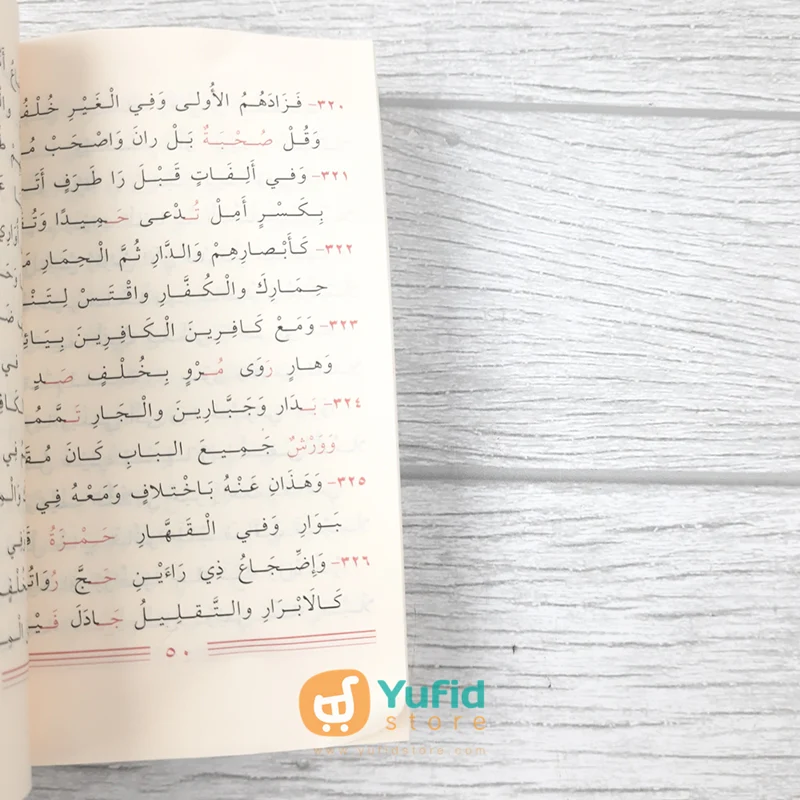 ٣٢٠- فَزَادَهُمُ الأُولى وَفِي الْغَيْرِ خُلْفُ
وَقُلْ صُحْبَةٌ بَلْ رانَ وَاصْحَبْ
٣٢١- وَفي أَلِفَاتٍ قَبْلَ رَا طَرَفٍ أَتَـ
بِكَسْرٍ أَمِلْ تُدْعى حَمِيدًا
٣٢٢- كَأَبْصارِهِمْ وَالدَّارِ ثُمَّ الْحِمَارِ
حِمَارِكَ والْكُفَّارِ واقْتَسْ
٣٢٣- وَمَعْ كَافِرِينَ الْكَافِرِينَ بِيَائِـ
وَهارٍ رَوَى مُرْوٍ بِخُلْفٍ صَدٍ
٣٢٤- بَدَارِ وَجَبَّارِينَ والْجَارِ تَمَّمُـ
وَوَرْشٌ جَمِيعَ البَابِ كَانَ
٣٢٥- وَهَذَانِ عَنْهُ بَاخْتلافٍ وَمَعْهُ فِي
بَوَارِ وَفي الْقَهَّارِ حَمْزَةُ
٣٢٦- وَإِضْجَاعُ ذِي رَاءَيْنِ حَجَّ رُوَاتُـ
كَالابْرَارِ والتَّقلِيلُ جَادَلَ
٥٠
Yufid
store
www.yufidstore.com